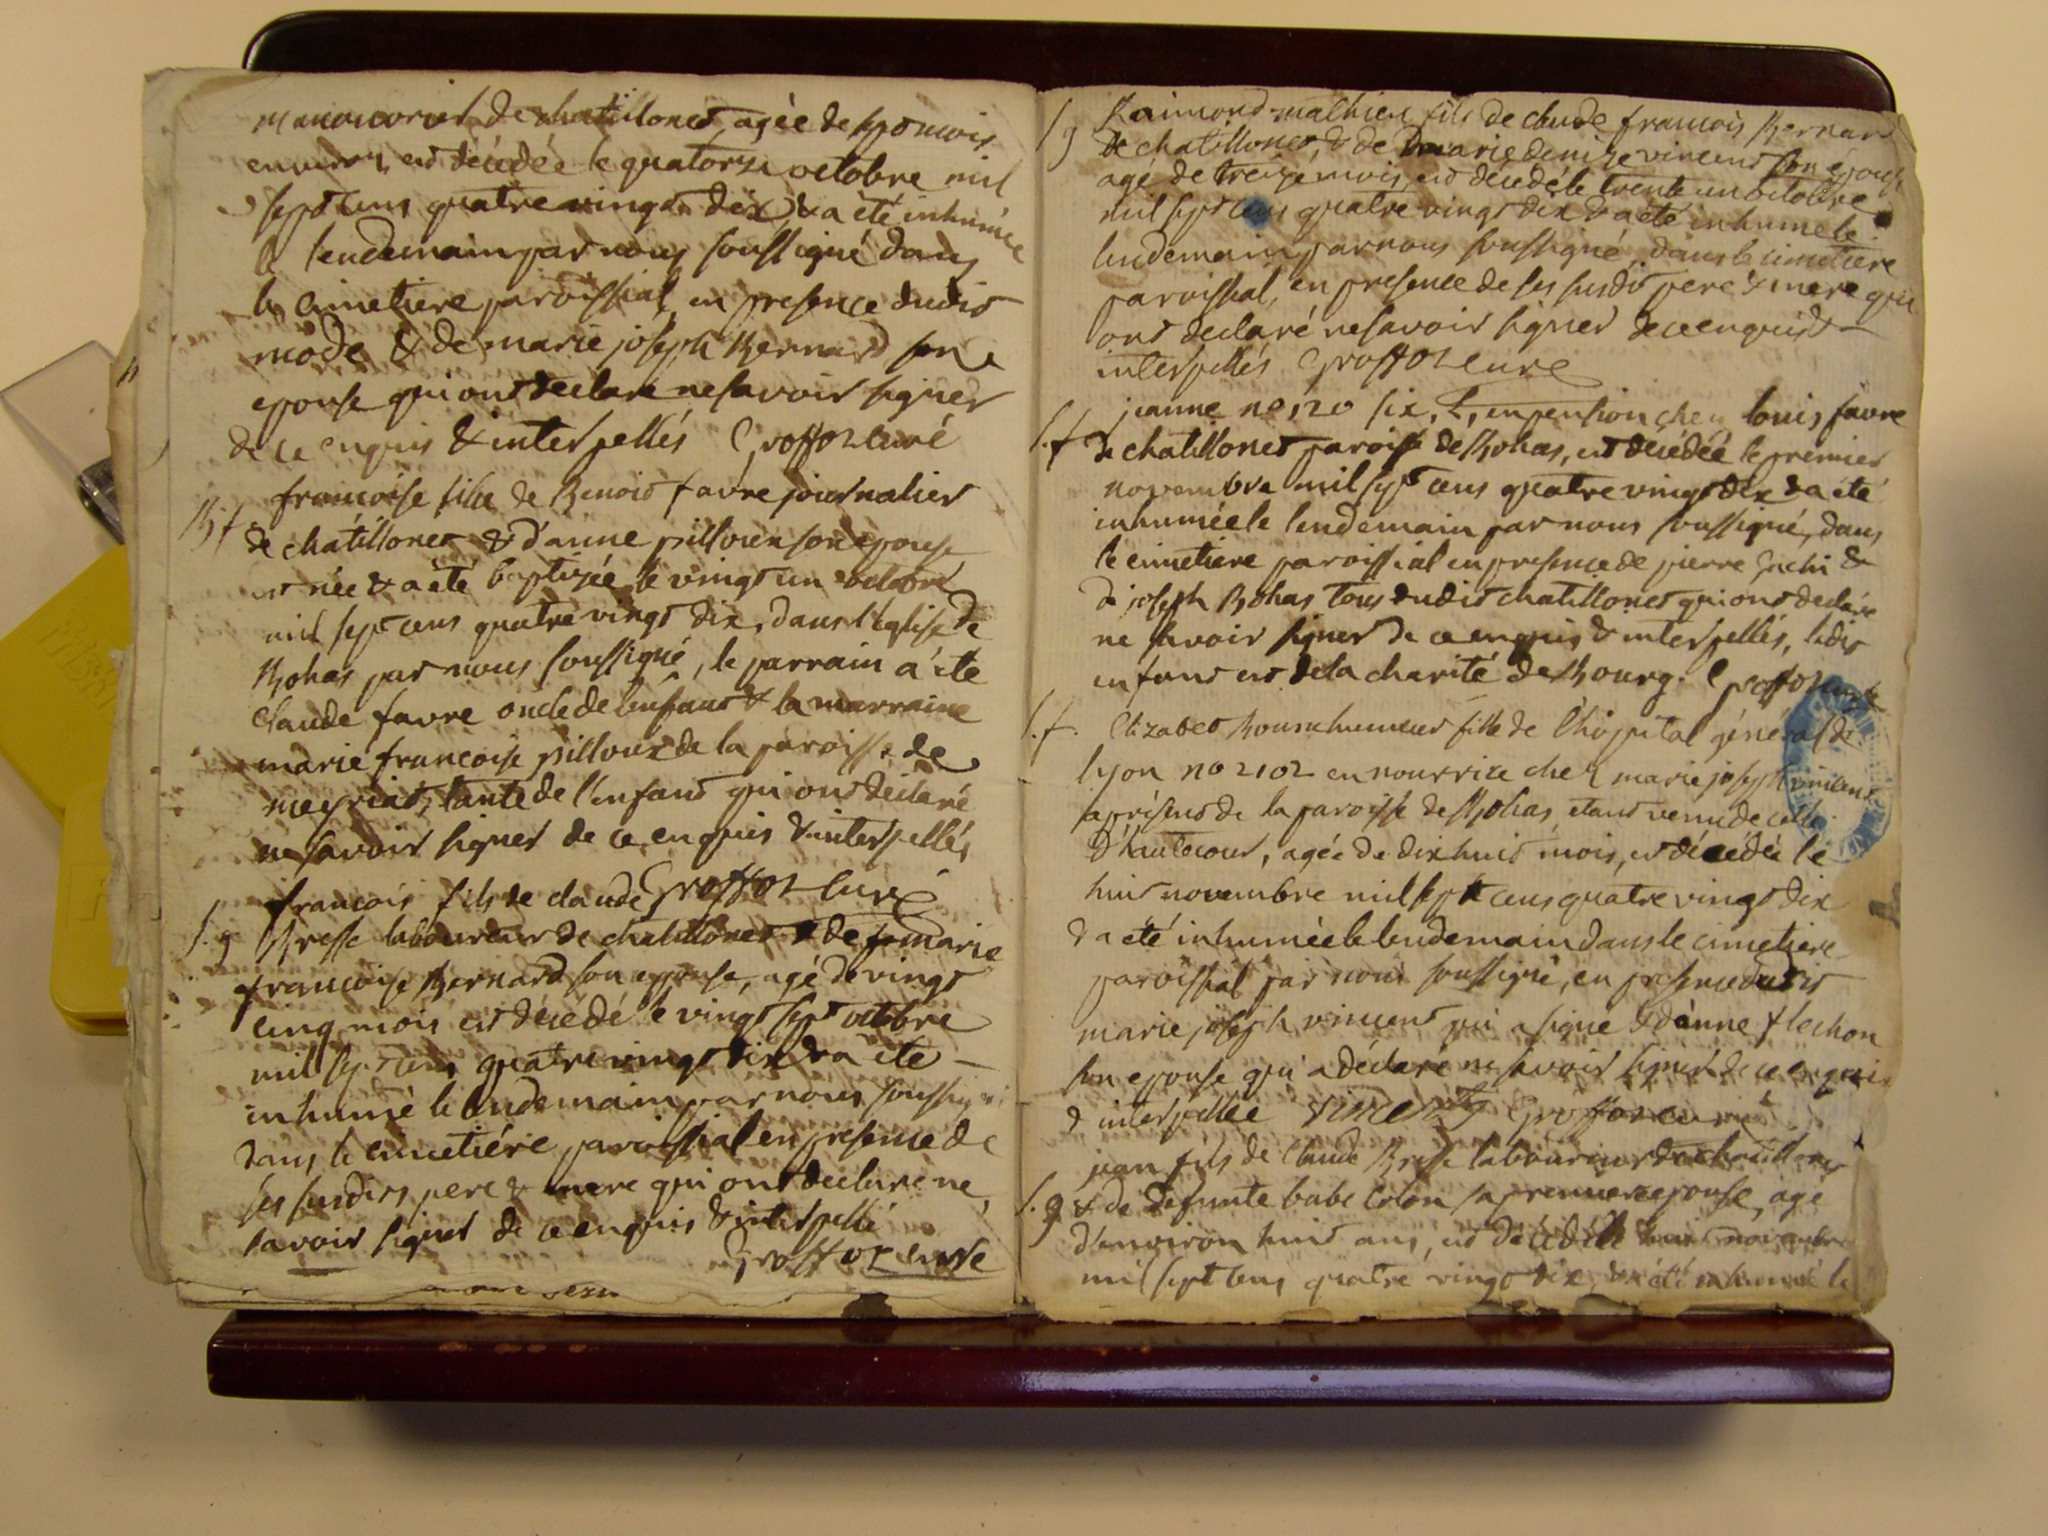 manouvrier de chatillonet, agée de sept mois
environ, est décédée le quatorze octobre mil
sept cens quatre vingt dix, & a été inhumée
le lendemain par nous soussigné dans
le cimetiere paroissial, en presence dudit
mode & de marie joseph Bernard son
epouse qui ont declaré ne savoir signer
de ce enquis & interpellés Groffoz curé
B.f francoise fille de Benoit favre journalier
de chatillonet & d'anne pilloux son epouse
est née & a été baptizée le vingt un octobre
mil sept cens quatre vingt dix, dans l'église de
Bohas par nous soussigné, le parrain a été
claude favre oncle de l'enfant & la marraine
marie francoise pilloux de la paroisse de
meyriat, tante de l'enfant qui ont déclaré
ne savoir signer de ce enquis & interpellés
Groffoz curé
S.g francois fils de claude
Bresse laboureur de chatillonet & de marie
francoise Bernard son epouse, agé de vingt
cinq mois est décédé le vingt sept octobre
mil sept cens quatre vingt dix & a été
inhumé le lendemain par nous soussigné
dans le cimetiére paroissial en presence de
ses susdits pere & mere qui ont déclaré ne
savoir signer de ce enquis & interpellé
Groffoz curé
S g Raimond mathieu fils de claude francois Bernard
de chatillonet, & de marie denize vincent son épouse
agé de treize mois, est décédé le trente un octobre
mil sept cens quatre vingt dix & a été inhumé le
lendemain par nous soussigné, dans le cimetiere
paroissial, en presence de ses susdits pere & mere qui
ont declaré ne savoir signer de ce enquis &
interpellés Groffoz curé
jeanne no 120 six, L, en pension chez louis favre
S.f de chatillonet paroisse de Bohas, est décédée le premier
novembre mil sept cens quatre vingt dix & a été
inhumée le lendemain par nous soussigné, dans
le cimetiere paroissial en presence de pierre &
de joseph Bohas tous dudit chatillonet qui ont declaré
ne savoir signer de ce enquis & interpellés, ledit
enfant est de la charité de Bourg. Groffoz curé
S.f Elizabet fille de l'hopital général de
lyon no 2102 en nourrice chez marie joseph vincent
a présent de la paroisse de Bohas etant venu de celle
D'hautecour, agée de dix huit mois, est décédée le
huit novembre mil sept cens quatre vingt dix
& a été inhumée le lendemain dans le cimetiere
paroissial par nous soussigné, en presence dudit
marie joseph vincent qui a signé & d'anne flechon
son epouse qui a déclaré ne savoir signer de ce enquis
& interpellée vincent Groffoz curé
jean fils de Claude Bresse laboureur de chatillonet
S.g & de defunte babe Colon sa premiere epouse, agé
d'environ huit ans, est décédé le huit novembre
mil sept cens quatre vingt dix, & a été inhumé le